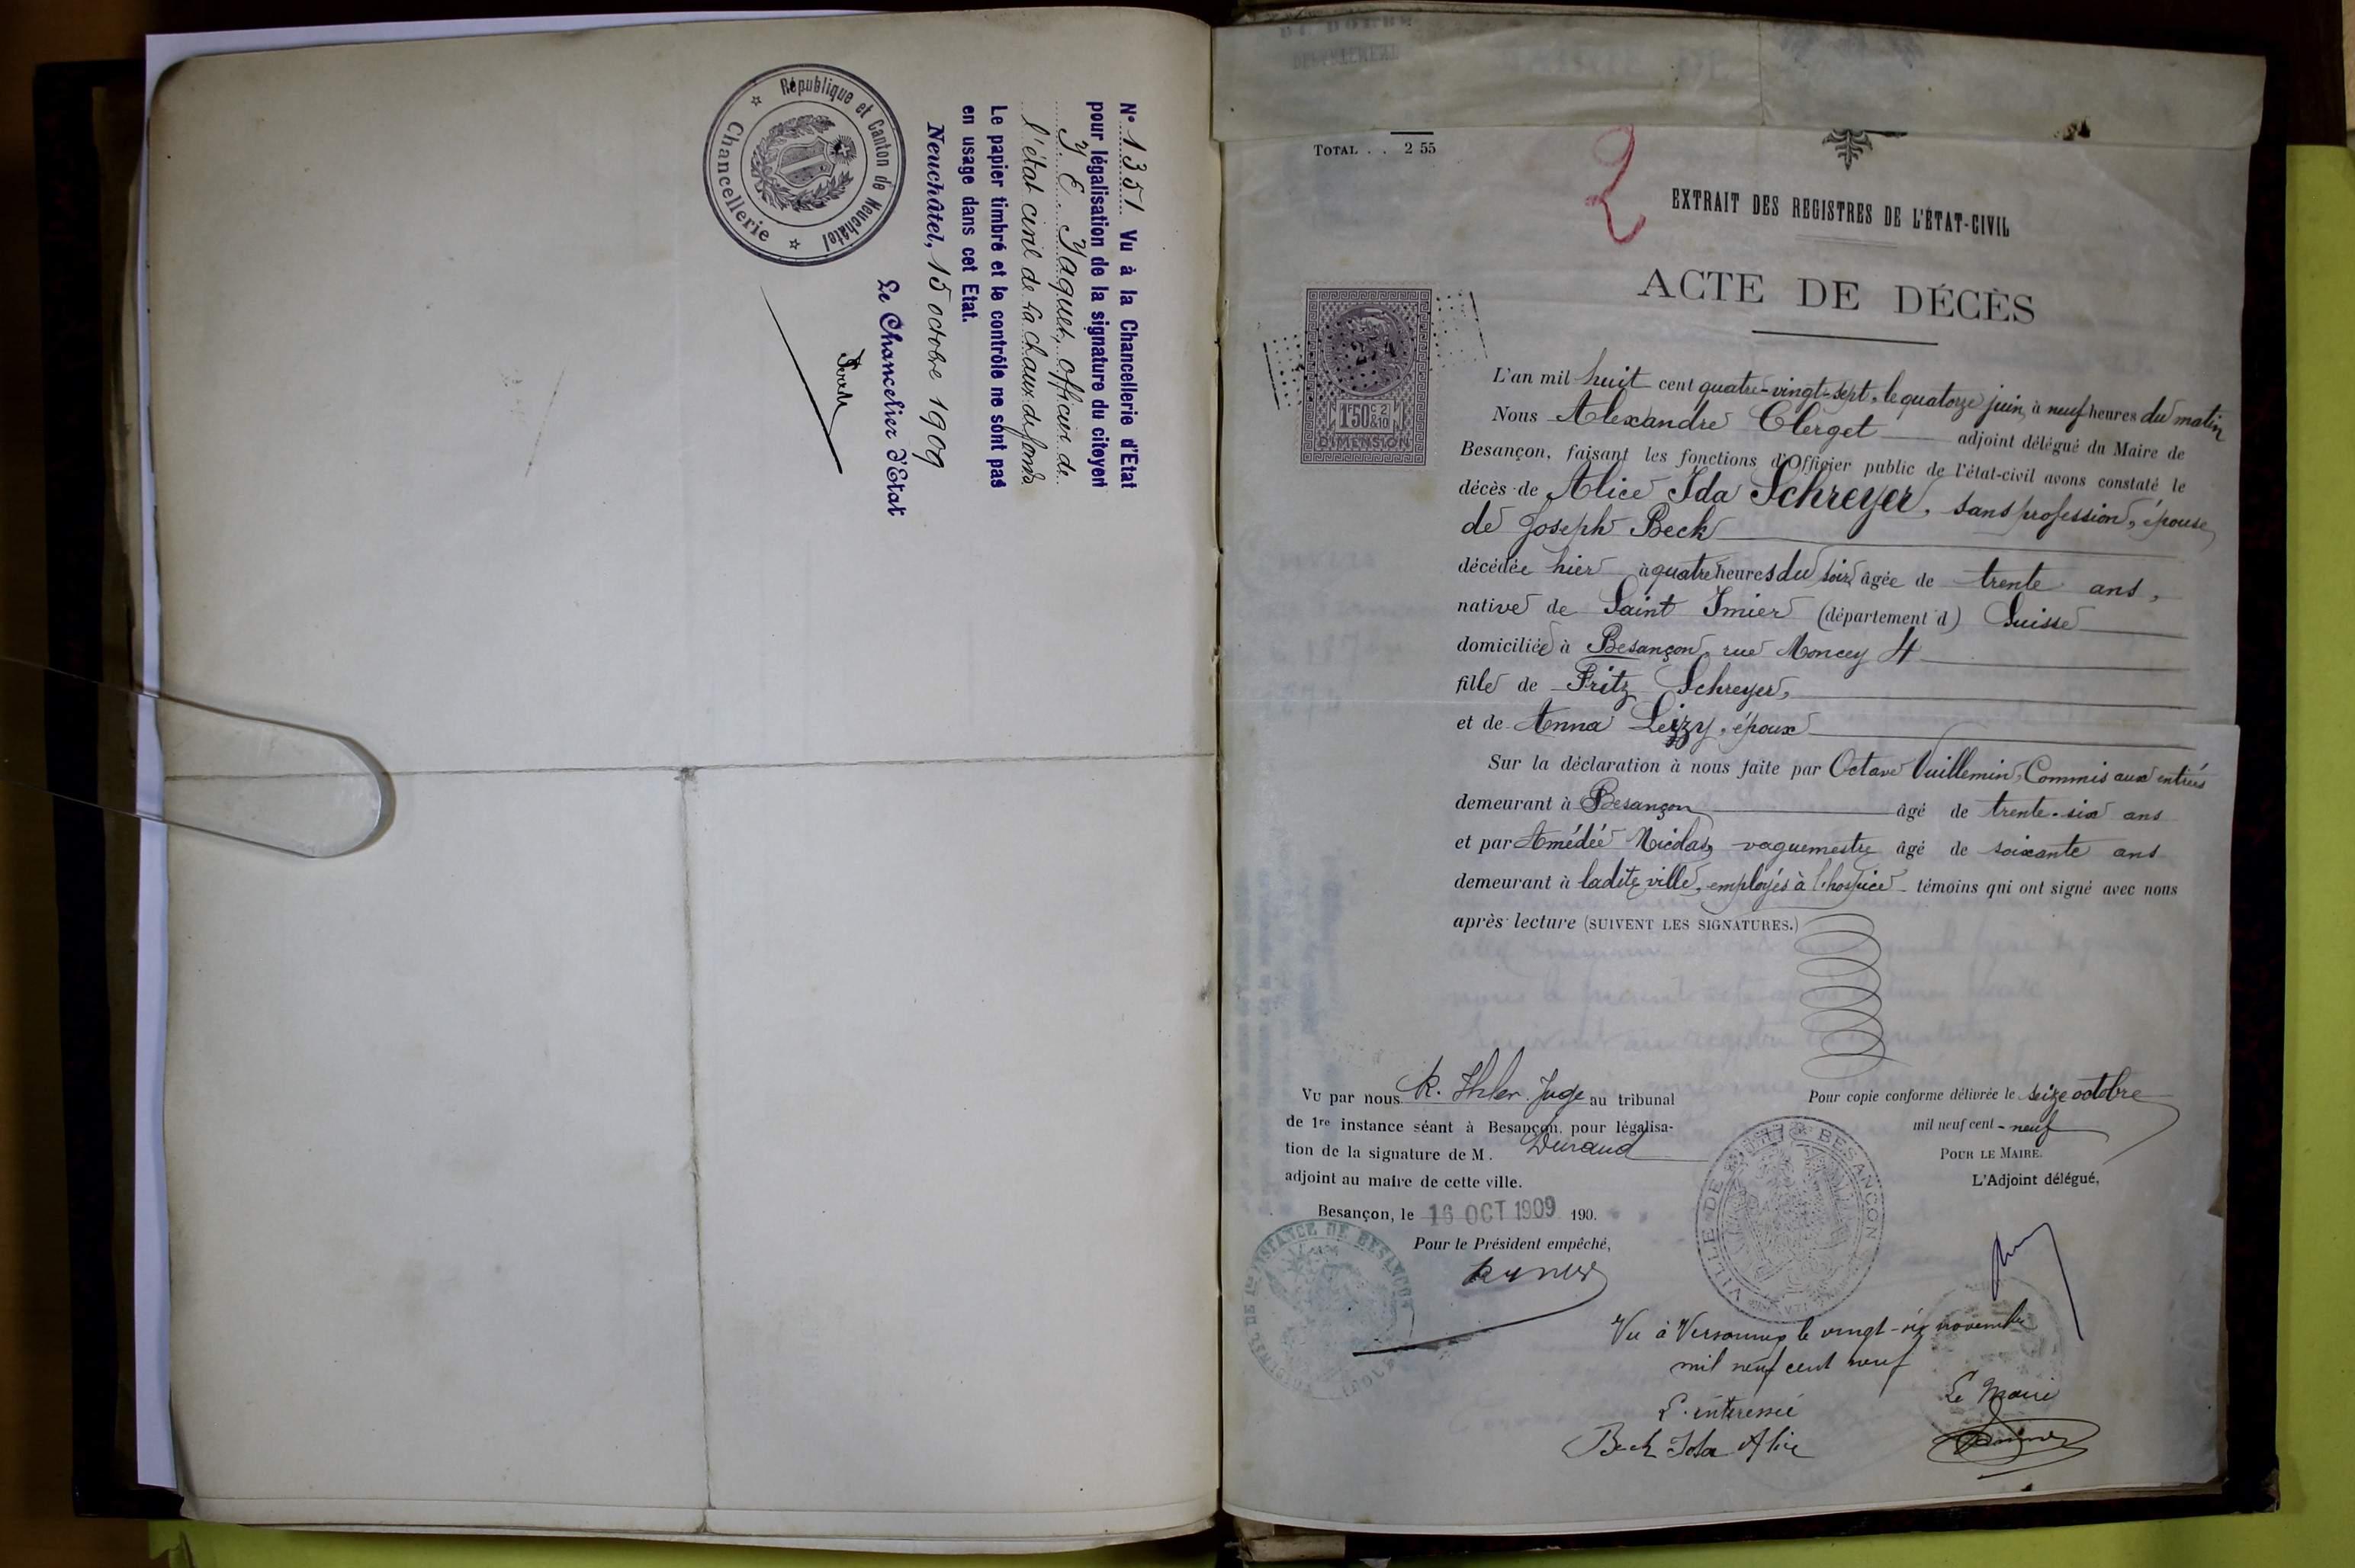 N° 1351 Vu à la Chancellerie d'Etat
pour légalisation de la signature du citoyen
J. E. Jaquet, officier de
l'état civil de la Chaux-de-fonds
Le papier timbré et le contrôle ne sont pas
en usage dans cet Etat.
Neuchâtel, 15 octobre 1909
Le Chancelier d'Etat
République et Canton de Neuchâtel
Chancellerie
TOTAL . . 2 55
2
EXTRAIT DES REGISTRES DE L'ÉTAT-CIVIL
ACTE DE DÉCÈS
1F50C 2/10
DIMENSION
L'an mil huit cent quatre-vingt-sept, le quatorze juin, à neuf heures du matin
Nous Alexandre Clerget adjoint délégué du Maire de
Besançon, faisant les fonctions d'Officier public de l'état-civil avons constaté le
décès de Alice Ida Schreyer, sans profession, épouse
de Joseph Beck
décédée hier à quatre heures du soir âgée de trente ans,
native de Saint Imier (département d) Suisse
domiciliée à Besançon, rue Moncey 4
fille de Fritz Schreyer,
et de Anna Leizzy, époux
Sur la déclaration à nous faite par Octave Vuillemin, Commis aux entrées
demeurant à Besançon âgé de trente-six ans
et par Amédée Nicolas, vaguemestre âgé de soixante ans
demeurant à ladite ville, employés à l'hospice témoins qui ont signé avec nous
après lecture (SUIVENT LES SIGNATURES.)
Vu par nous K. Ihler Juge au tribunal
de 1re instance séant à Besançon, pour légalisa-
tion de la signature de M. Durand
adjoint au maire de cette ville.
Besançon, le 16 OCT 1909 190.
Pour le Président empêché,
TRIBUNAL DE 1RE INSTANCE DE BESANÇON
Pour copie conforme délivrée le seize octobre
mil neuf cent-neuf
POUR LE MAIRE.
L'Adjoint délégué,
VILLE DE BESANÇON
Vu à Versonnex le vingt-six novembre
mil neuf cent neuf
L'intéressée
Le Maire
Beck Ida Alice